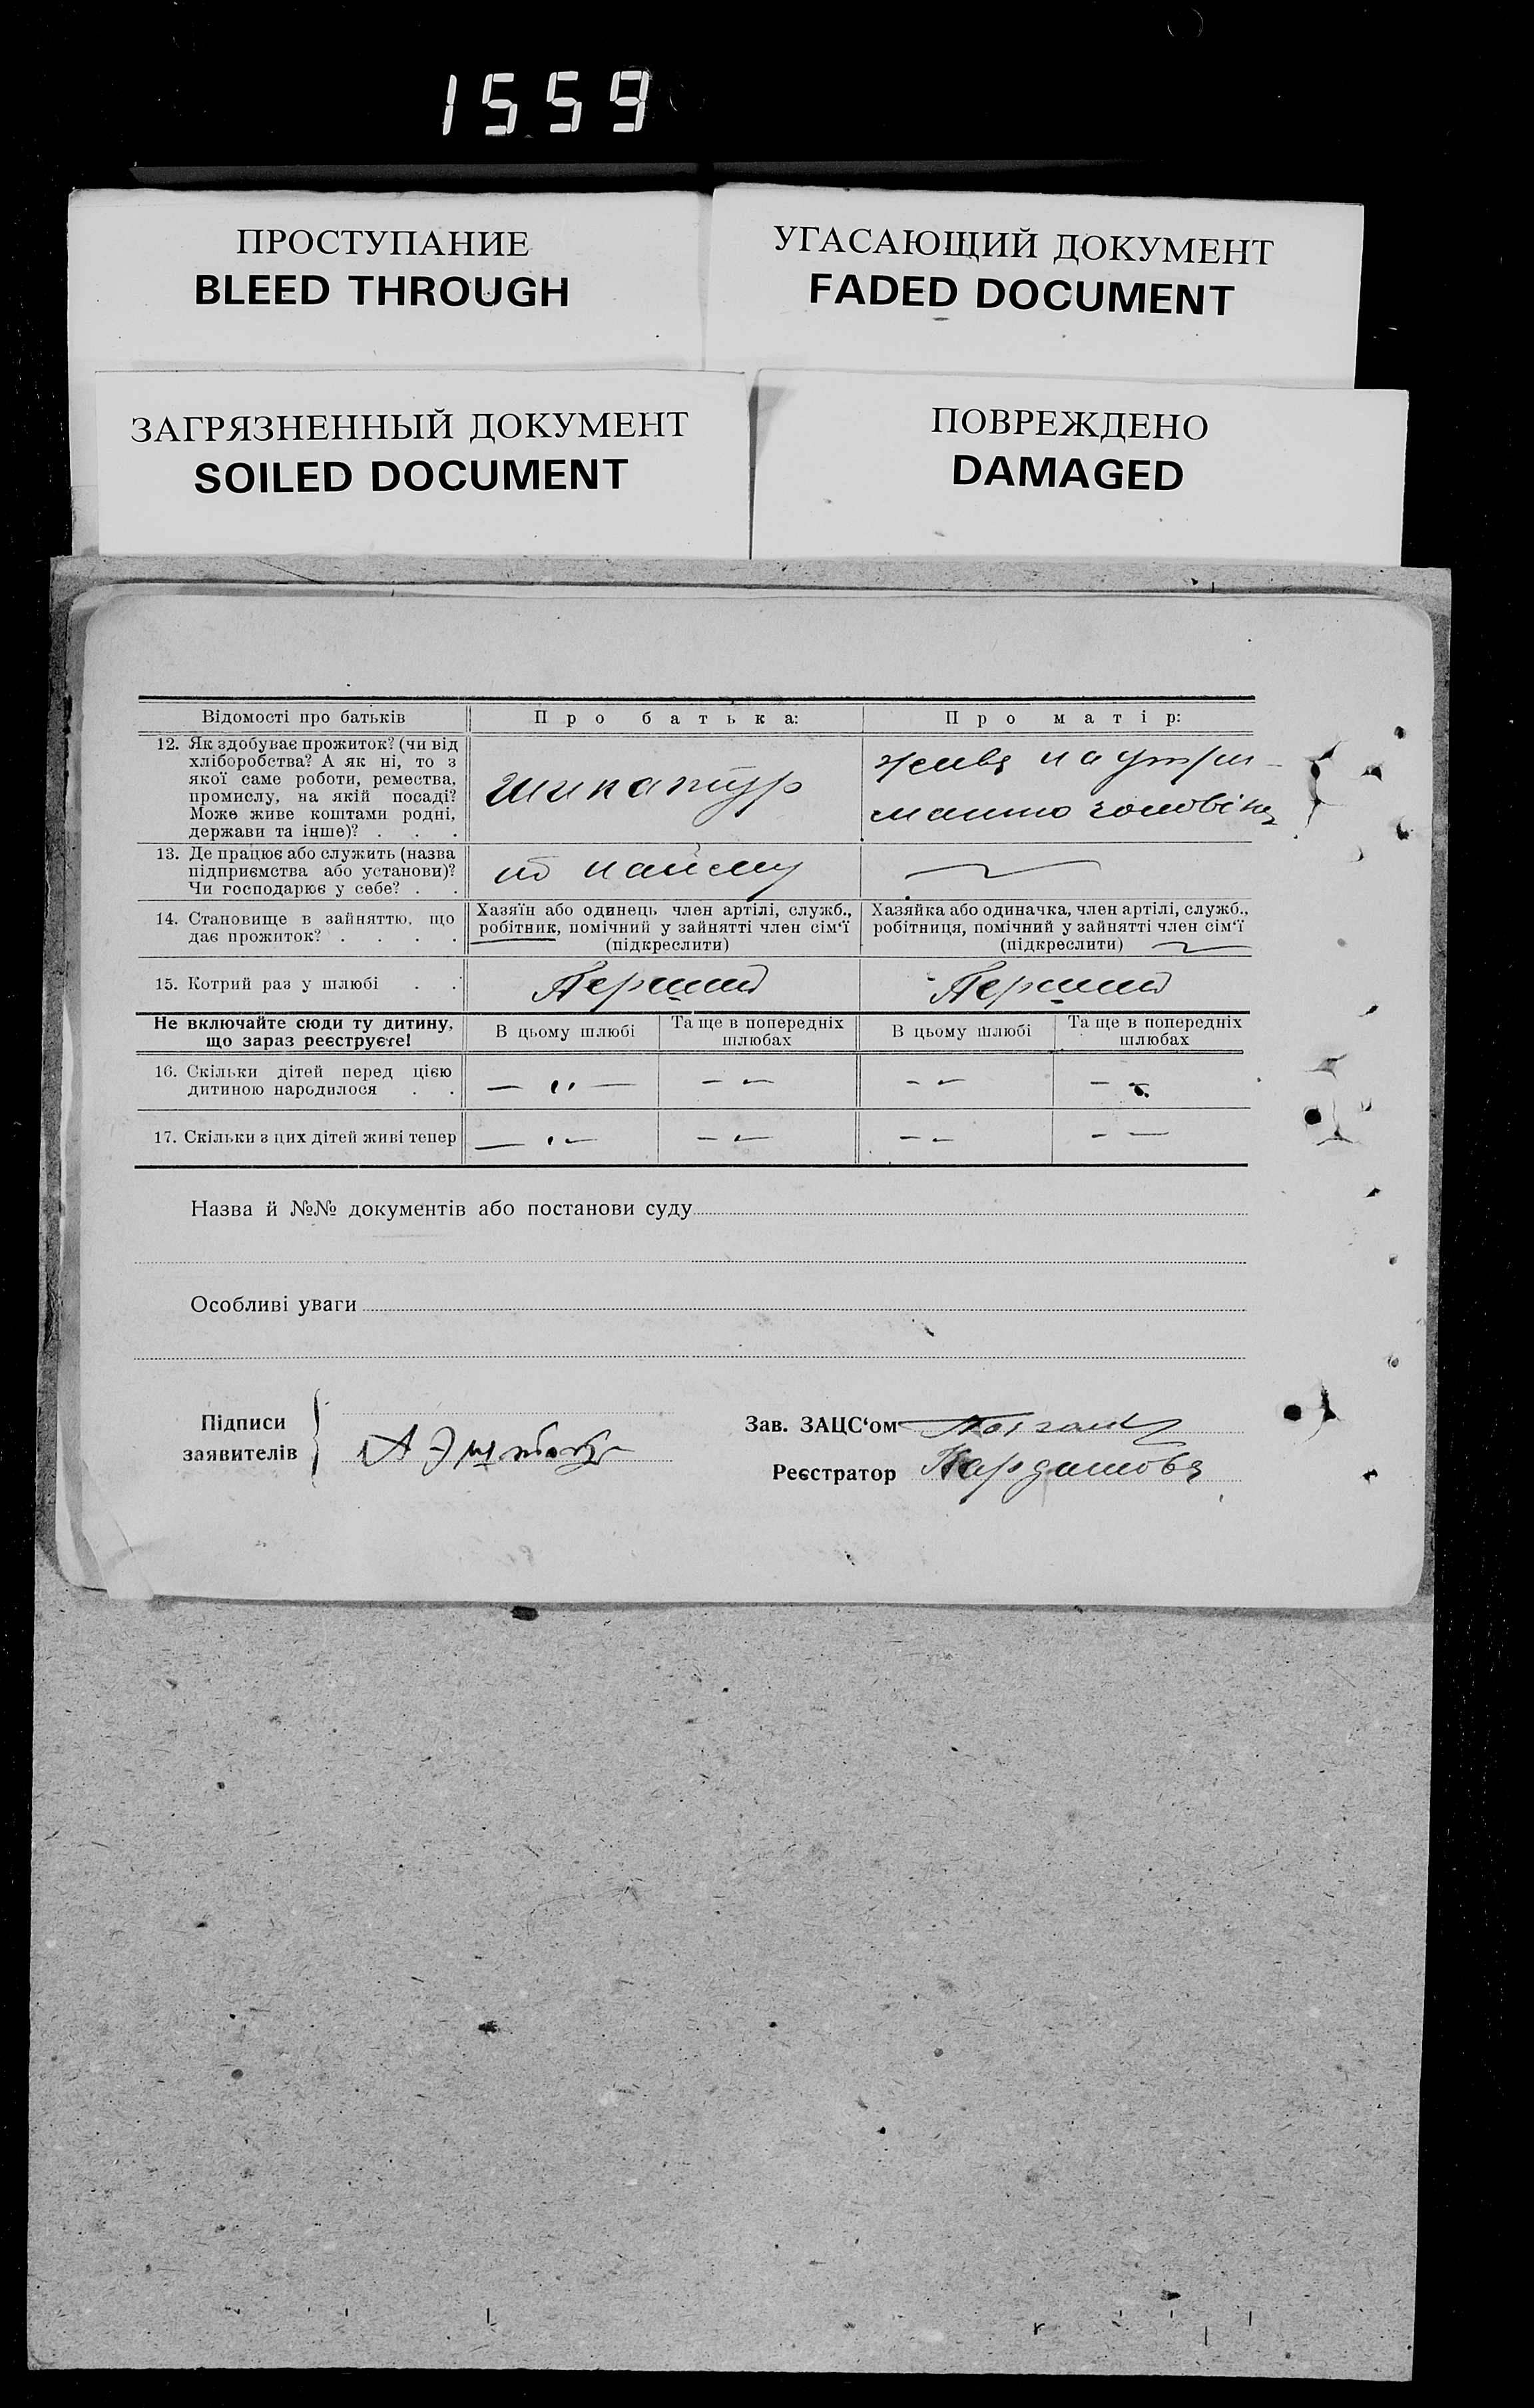 1559
ПРОСТУПАНИЕ
BLEED THROUGH
УГАСАЮЩИЙ ДОКУМЕНТ
FADED DOCUMENT
ЗАГРЯЗНЕННЫЙ ДОКУМЕНТ
SOILED DOCUMENT
ПОВРЕЖДЕНО
DAMAGED
Відомості про батьків
Про батька:
Про матір:
12. Як здобуває прожиток? (чи від
хліборобства? А як ні, то з
якої саме роботи, ремества,
промислу, на якій посаді?
Може живе коштами родні,
держави та інше)? . . .
шпкатур
живе на утри-
манню чоловіка
13. Де працює або служить (назва
підприємства або установи)?
Чи господарює у себе? . .
по найму
14. Становище в зайняттю, що
дає прожиток? . . . .
Хазяїн або одинець член артілі, служб.,
робітник, помічний у зайнятті член сім'ї
(підкреслити)
Хазяйка або одиначка, член артілі, служб.,
робітниця, помічний у зайнятті член сім'ї
(підкреслити)
15. Котрий раз у шлюбі . .
Перший
Перший
Не включайте сюди ту дитину,
що зараз реєструєте!
В цьому шлюбі
Та ще в попередніх
шлюбах
В цьому шлюбі
Та ще в попередніх
шлюбах
16. Скільки дітей перед цією
дитиною народилося . .
— „ —
— —
— —
— —
17. Скільки з цих дітей живі тепер
— „ —
— —
— —
— —
Назва й №№ документів або постанови суду
Особливі уваги
Підписи
заявителів
Зав. ЗАЦС'ом
Реєстратор